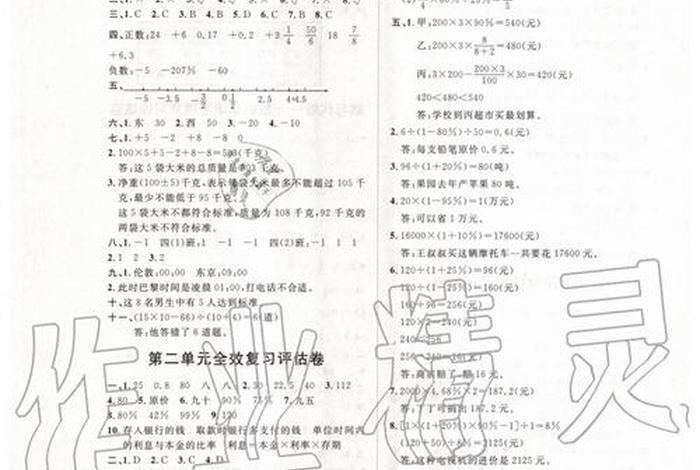 三、1.C 2.B 3.C 4.B 5.C 6.B 7.B 8.C
四、正数:24 +6 0.17 +0.2 +3 1/4 50/6 18 7/8
+6.3
负数:-5 -207% -60
五、
六、1.东 30 2.西 50 3.-20 4.-10
七、1.+5 -2 +8 -8
2.100×5+5-2+8-8=503(千克)
答:这5袋大米的总质量是503千克。
3.净重(100±5)千克,表示每袋大米最多不能超过105千
克,最少不能低于95千克。
这5袋大米不都符合标准,质量为108千克,92千克的
两袋大米不符合标准。
八、1.-1 四(1)班:1 -1 -1 四(2)班:-1 1 1
2.1 2 3.2
九、1.伦敦:00:00 东京:09:00
2.此时巴黎时间是凌晨01:00,打电话不合适。
十、这8名男生中有5人达到标准。
十一、(15×10-66)÷(10+4)=6(道)
答:他答错了6道题。
第二单元全效复习评估卷
一、1.25 0.8 80 八 八 2.30 22.5 40 3.112
4.80 5.原价 6.九十 90% 75% 7.九五
8.80% 42% 99% 9.120
10.存入银行的钱 取款时银行多支付的钱 单位时间内
的利息与本金的比率 利息=本金×利率×存期
二、1.D 2.C 3.C 4.D
五、1.甲:200×3×90%=540(元)
乙:200×3×8/(8+2)=480(元)
丙:3×200-(200×3)/100×30=420(元)
420<480<540
答:学校到丙超市买最划算。
2.6÷(1-80%)÷50=0.6(元)
答:每支铅笔原价0.6元。
3.96÷(1+20%)=80(吨)
答:果园去年产苹果80吨。
4.20×(1-95%)=1(万元)
答:可以省1万元。
5.16000×(1+10%)=17600(元)
答:王叔叔买这辆摩托车一共要花17600元。
6.120÷(1+25%)=96(元)
120÷(1-25%)=160(元)
160+96=256(元)
120×2=240(元)
答:商店赔了
7.2000×4.68%×2=187.2(元)
答:丁丁可得到187.2元。
8.[1×(1+20%)×90%-1]÷1=8%
(120+50)÷8%=2125(元)
答:这种电视机的进价是2125元。
作业精灵